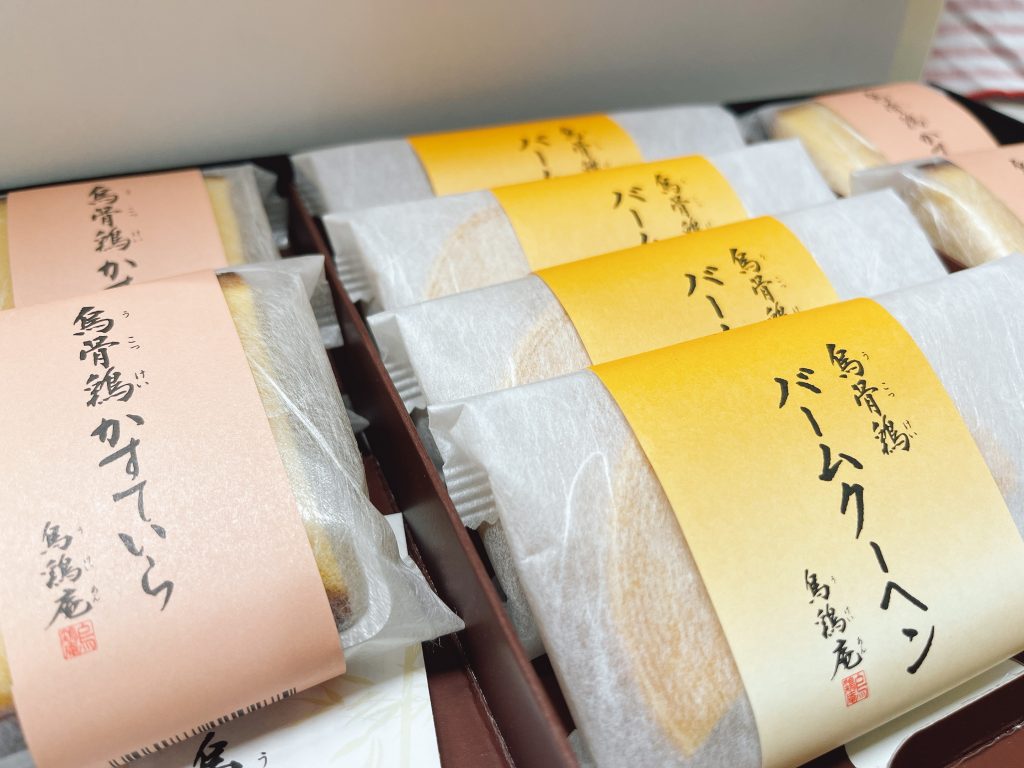 烏骨鶏かす
うこっけい
烏骨鶏かすていら
うこっけい
烏鶏庵
うけいあん
烏骨鶏
バーム
烏骨鶏
バーム
烏骨鶏
バー
烏骨鶏
うこっけい
バームクーヘン
烏鶏庵
うけいあん
烏
う